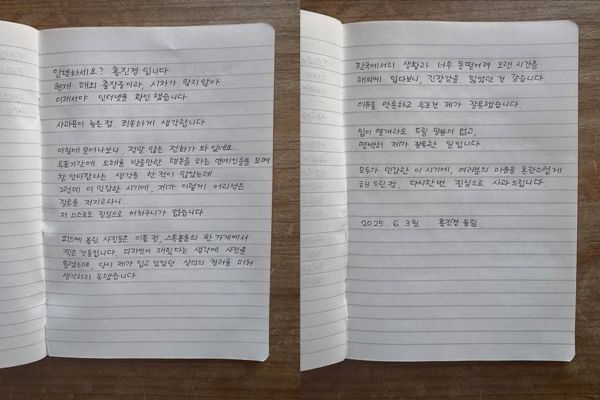 안녕하세요? 홍진경 입니다
현재 해외 출장중이라, 시차가 맞지 않아
이제서야 인터넷을 확인 했습니다
사과문이 늦은 점 죄송하게 생각합니다
아침에 일어나보니, 정말 많은 전화가 와 있었네요.
투표기간에 오해를 받을만한 행동을 하는 연예인들을 보며
참 안타깝다는 생각을 한 적이 있었는데,
그런데 이 민감한 시기에, 제가 이렇게 어리석은
잘못을 저지르다니
저 스스로도 진심으로 어처구니가 없습니다.
피드에 올린 사진들은 이틀 전, 스톡홀름의 한 가게에서
찍은 것들입니다. 디자인이 재밌다는 생각에 사진을
올렸는데, 당시 제가 입고 있었던 상의의 컬러를 미처
생각하지 못했습니다
한국에서의 생활과 너무 동떨어져 오랜 시간을
해외에 있다보니, 긴장감을 잃었던 것 같습니다.
이유를 막론하고 무조건 제가 잘못했습니다.
입이 열개라도 드릴 말씀이 없고,
명백히 제가 잘못한 일입니다.
모두가 민감한 이 시기에, 여러분의 마음을 혼란스럽게
해 드린 점, 다시한번 진심으로 사과드립니다.
2025. 6. 3일 홍진경 올림.